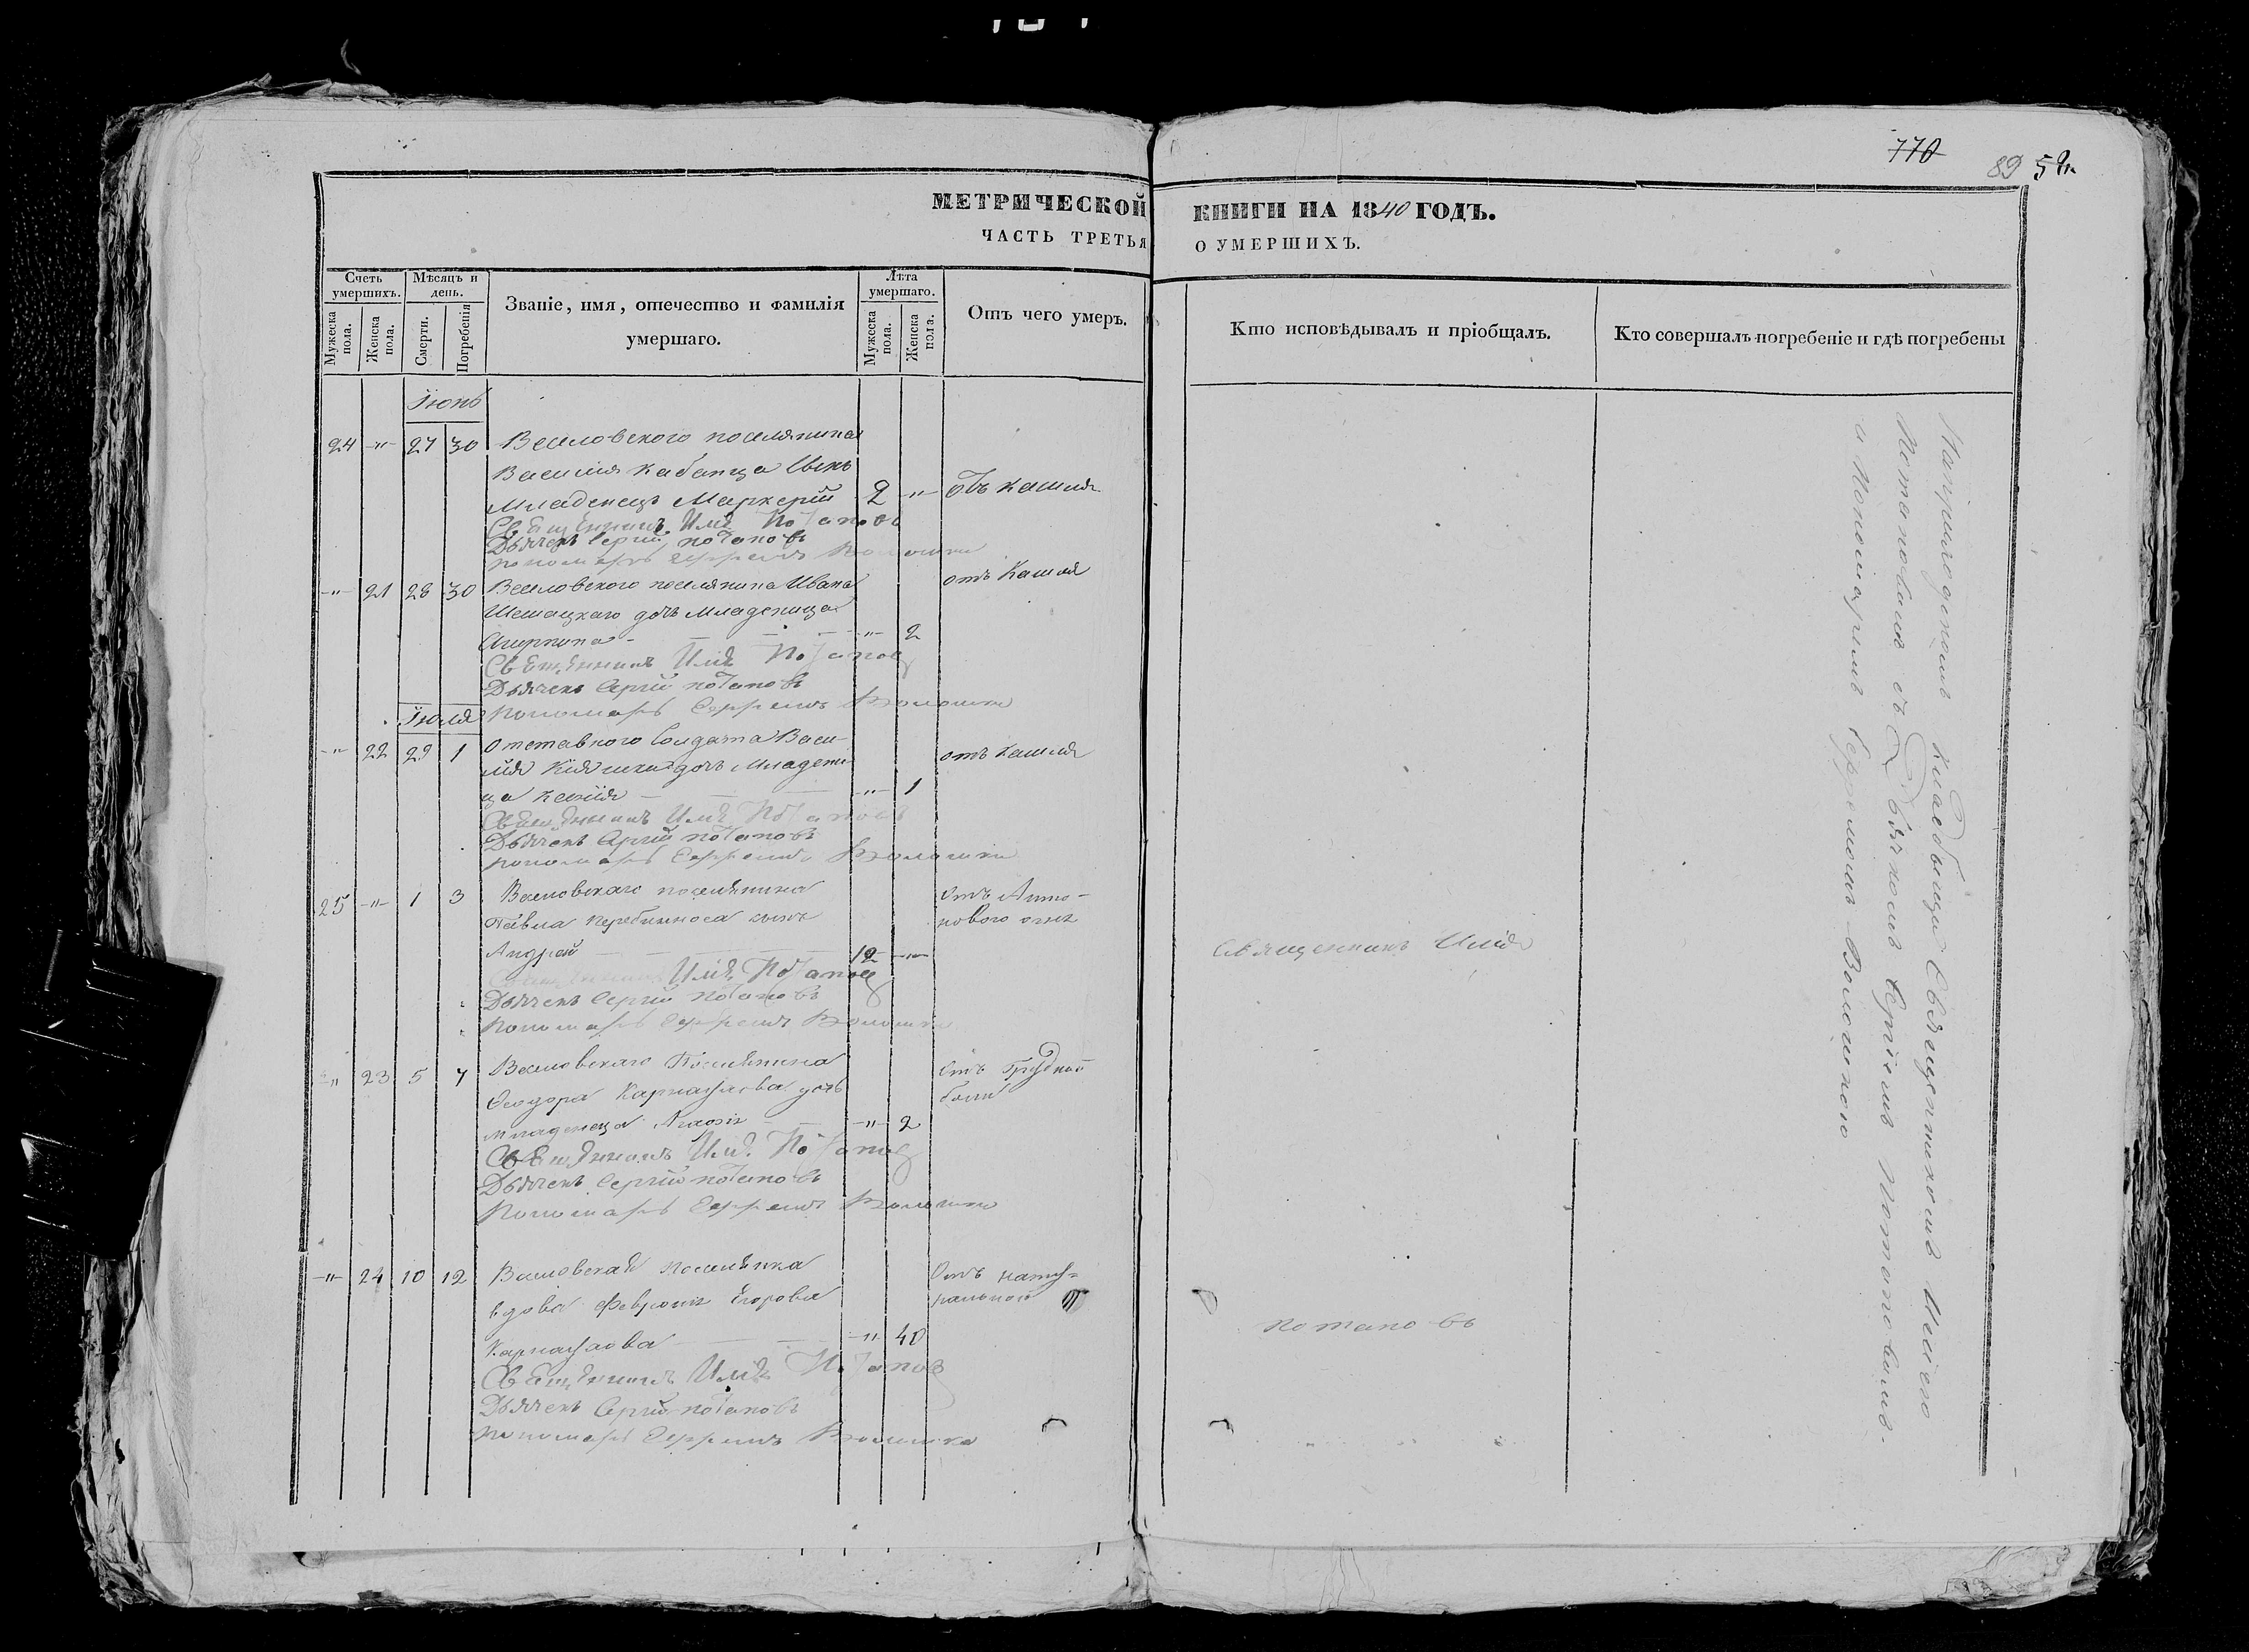 770
89
МЕТРИЧЕСКОЙ КНИГИ НА 1840 ГОДЪ.
ЧАСТЬ ТРЕТЬЯ О УМЕРШИХЪ.
Счетъ умершихъ.
Мужеска пола.
Женска пола.
Мѣсяцъ и день.
Смерти.
Погребенія
Званіе, имя, отечество и фамилія
умершаго.
Лѣта умершаго.
Мужеска пола.
Женска пола.
Отъ чего умеръ.
Кто исповѣдывалъ и пріобщалъ.
Кто совершалъ погребеніе и гдѣ погребены
Іюнь
24 -"- 27 30 Веселовского поселянина
Василія Кабанца сынъ
младенецъ Меркерій 2 -"- отъ кашля
Священникъ Илія Потаповъ
Дьячекъ Сергій Потаповъ
Пономарь Ефремъ
-"- 21 28 30 Веселовского поселянина Ивана отъ кашля
дочь младеница
Агрипина -"- 2
Священникъ Илія Потаповъ
Дьячекъ Сергій Потаповъ
Іюля Пономарь Ефремъ
-"- 22 29 1 Отставного Солдата Васи- отъ кашля
лія дочь младени
ца Ксенія -"- 1
Священникъ Илія Потаповъ
Дьячекъ Сергій Потаповъ
Пономарь Ефремъ
25 -"- 1 3 Веселовскаго поселянина Отъ Анто-
Павла Перебейноса сынъ нового огня
Андрей 12 -"- Священникъ Илія
Священникъ Илія Потаповъ
Дьячекъ Сергій Потаповъ
Пономарь Ефремъ
-"- 23 5 7 Веселовскаго Поселянина Отъ Грудной
Ѳеодора Карнаухова дочь боли
младенеца -"- 2
Священникъ Илія Потаповъ
Дьячекъ Сергій Потаповъ
Пономарь Ефремъ
-"- 24 10 12 Веселовская поселянка Отъ нату-
вдова Февронія Егорова ральной
Карнаухова -"- 40 Потаповъ
Священникъ Илія Потаповъ
Дьячекъ Сергій Потаповъ
Пономарь Ефремъ
На приходскомъ кладбищѣ Священникомъ Иліею
Потаповымъ съ Дьячкомъ Сергіемъ Потаповымъ
и Пономаремъ Ефремомъ Волошиною